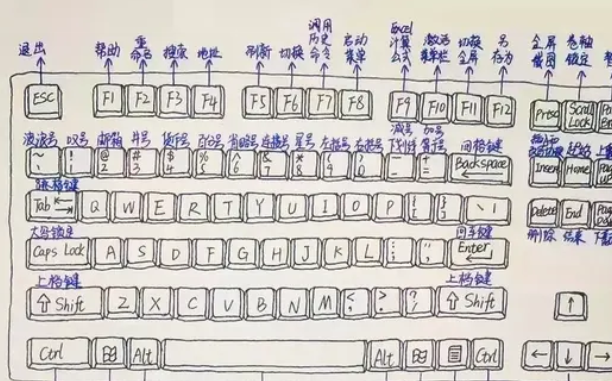 退出 帮助 重命名 搜索 地址 刷新 切换 调用历史命令 启动菜单 Excel计算公式 激活菜单栏 切换全屏 另存为 全屏截图 卷轴锁定
ESC F1 F2 F3 F4 F5 F6 F7 F8 F9 F10 F11 F12 Prtsc Scroll Lock
波浪号 叹号 邮箱 井号 货币号 百分号 省略号 连接号 星号 左括号 右括号 减号下划线 加号等于号 间格键
~ ` ! 1 @ 2 # 3 $ 4 % 5 ^ 6 & 7 * 8 ( 9 ) 0 _ - + = Backspace Insert Home Page up
跳格键
Tab Q W E R T Y U I O P { [ } ] \ | Delete End Page
大写锁定 回车键 删除 结束
Caps Lock A S D F G H J K L : ; " ' Enter
上档键 上档键
Shift Z X C V B N M < , > . ? / Shift ↑
Ctrl Alt Alt Ctrl ← ↓ →